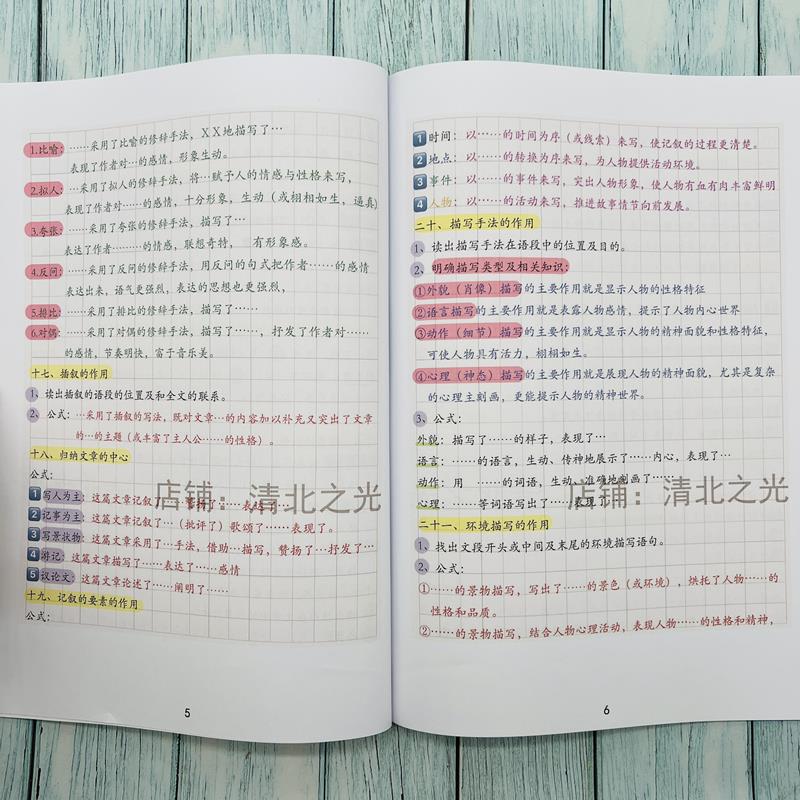 1.比喻：……采用了比喻的修辞手法，XX地描写了…
表现了作者对…的感情，形象生动。
2.拟人：…采用了拟人的修辞手法，将…赋予人的情感与性格来写，
表现了作者对…的感情，十分形象，生动（或栩栩如生，逼真）
3.夸张：……采用了夸张的修辞手法，描写了…
表达了作者………的情感，联想奇特， 有形象感。
4.反问：……采用了反问的修辞手法，用反问的句式把作者……的感情
表达出来，语气更强烈，表达的思想也更强烈，
5.排比：……采用了排比的修辞手法，描写了……
6.对偶：……采用了对偶的修辞手法，描写了……，抒发了作者对……
的感情，节奏明快，富于音乐美。
十七、插叙的作用
1、读出插叙的语段的位置及和全文的联系。
2、公式：…采用了插叙的写法，既对文章…的内容加以补充又突出了文章
的…的主题（或丰富了主人公……的性格）。
十八、归纳文章的中心
公式：
1写人为主：这篇文章记叙了…赞扬了…表达了…
2记事为主：这篇文章记叙了…（批评了）歌颂了……表现了。
3写景状物：这篇文章采用了…手法，借助…描写，赞扬了…抒发了…
4游记：这篇文章描写了……表达了……感情
5议论文：这篇文章论述了……阐明了……
十九、记叙的要素的作用
公式：
店铺：清北之光
5
1时间：以……的时间为序（或线索）来写，使记叙的过程更清楚。
2地点：以……的转换为序来写，为人物提供活动环境。
3事件：以……的事件来写，突出人物形象，使人物有血有肉丰富鲜明
4人物：以……的活动来写，推进故事情节向前发展。
二十、描写手法的作用
1、读出描写手法在语段中的位置及目的。
2、明确描写类型及相关知识：
①外貌（肖像）描写的主要作用就是显示人物的性格特征
②语言描写的主要作用就是表露人物感情，提示了人物内心世界
③动作（细节）描写的主要作用就是显示人物的精神面貌和性格特征，
可使人物具有活力，栩栩如生。
④心理（神态）描写的主要作用就是展现人物的精神面貌，尤其是复杂
的心理主刻画，更能提示人物的精神世界。
3、公式：
外貌：描写了……的样子，表现了…
语言：……的语言，生动、传神地展示了……内心，表现了…
动作：用 ……的词语，生动、准确地刻画了……
心理：……等词语写出了……表现了
二十一、环境描写的作用
1、找出文段开头或中间及末尾的环境描写语句。
2、公式：
①……的景物描写，写出了……的景色（或环境），烘托了人物……的
性格和品质。
②……的景物描写，结合人物心理活动，表现人物……的性格和精神，
店铺：清北之光
6